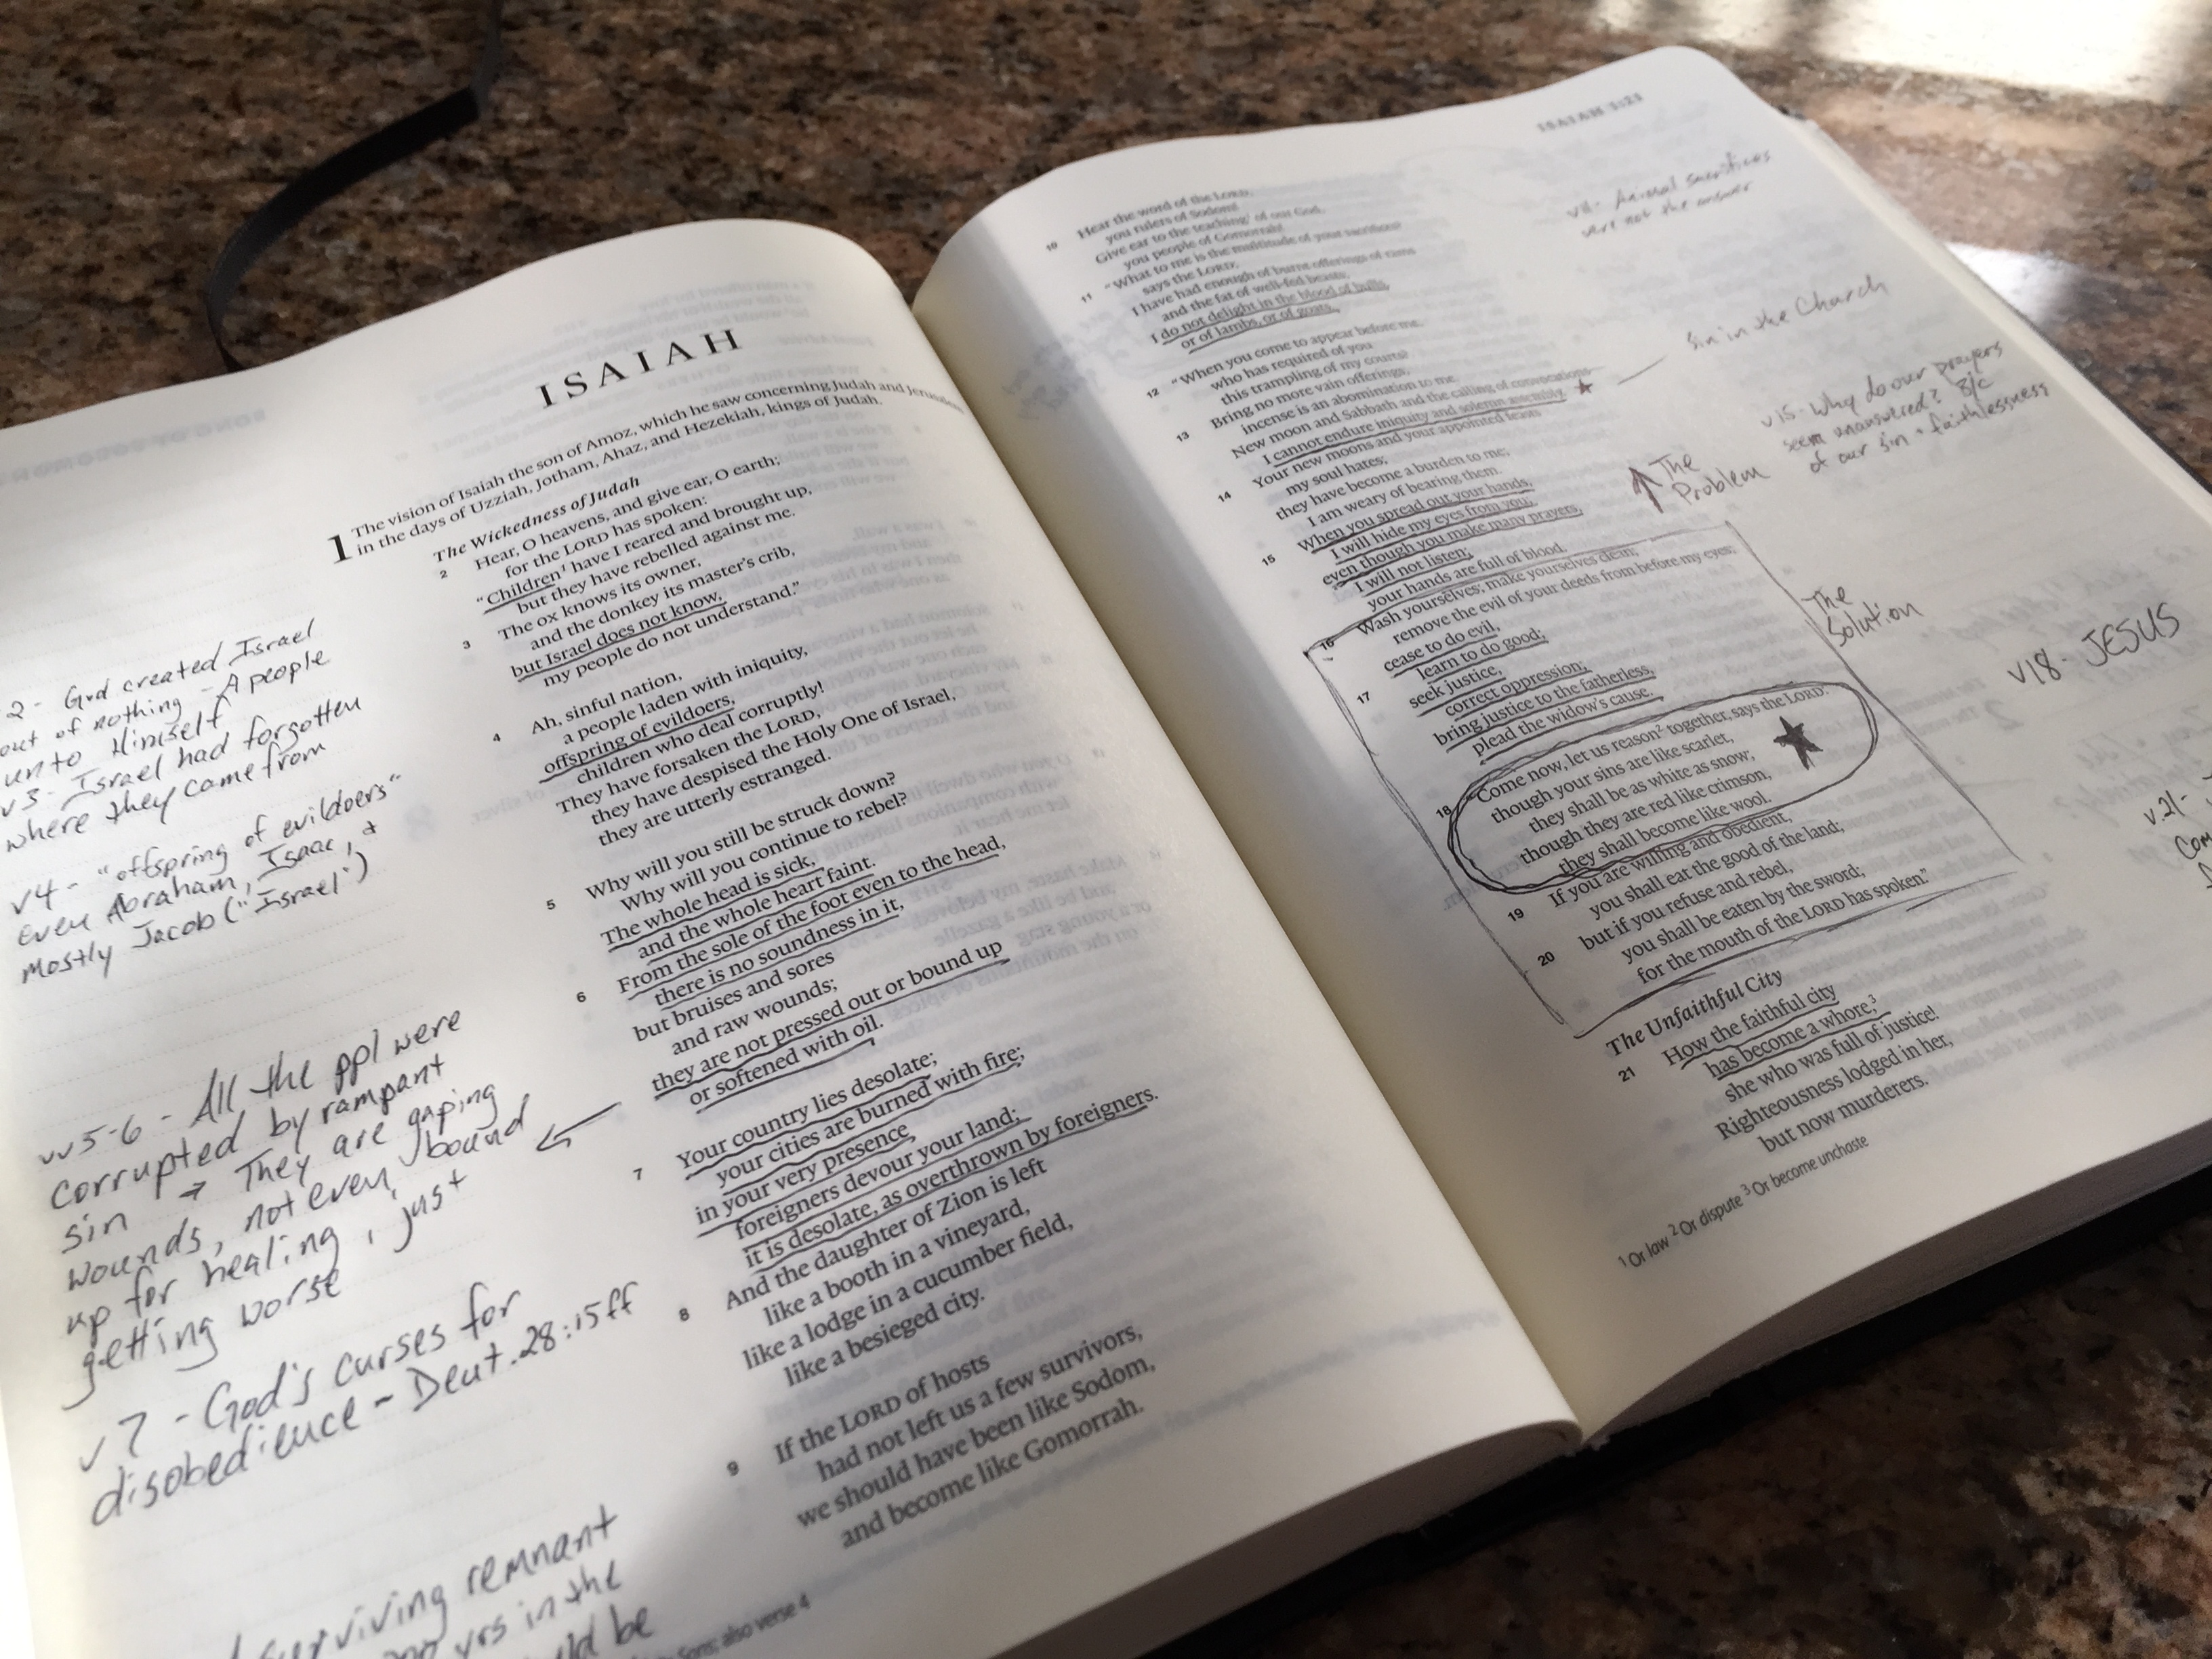 ISAIAH
1 The vision of Isaiah the son of Amoz, which he saw concerning Judah and Jerusalem
in the days of Uzziah, Jotham, Ahaz, and Hezekiah, kings of Judah.
The Wickedness of Judah
2 Hear, O heavens, and give ear, O earth;
for the LORD has spoken:
"Children¹ have I reared and brought up,
but they have rebelled against me.
3 The ox knows its owner,
and the donkey its master's crib,
but Israel does not know,
my people do not understand."
4 Ah, sinful nation,
a people laden with iniquity,
offspring of evildoers,
children who deal corruptly!
They have forsaken the LORD,
they have despised the Holy One of Israel,
they are utterly estranged.
5 Why will you still be struck down?
Why will you continue to rebel?
The whole head is sick,
and the whole heart faint.
6 From the sole of the foot even to the head,
there is no soundness in it,
but bruises and sores
and raw wounds;
they are not pressed out or bound up
or softened with oil.
7 Your country lies desolate;
your cities are burned with fire;
in your very presence
foreigners devour your land;
it is desolate, as overthrown by foreigners.
8 And the daughter of Zion is left
like a booth in a vineyard,
like a lodge in a cucumber field,
like a besieged city.
9 If the LORD of hosts
had not left us a few survivors,
we should have been like Sodom,
and become like Gomorrah.
Sons; also verse 4
2 - God created Israel
out of nothing - A people
unto Himself
v3 - Israel had forgotten
where they came from
v4 - "offspring of evildoers"
even Abraham, Isaac, +
mostly Jacob ("Israel")
vv5-6 - All the ppl were
corrupted by rampant
sin → They are gaping
wounds, not even bound
up for healing, just
getting worse
v7 - God's curses for
disobedience - Deut. 28:15ff
surviving remnant
yrs in the
be
ISAIAH 1:21
10 Hear the word of the LORD,
you rulers of Sodom!
Give ear to the teaching¹ of our God,
you people of Gomorrah!
11 "What to me is the multitude of your sacrifices?
says the LORD;
I have had enough of burnt offerings of rams
and the fat of well-fed beasts;
I do not delight in the blood of bulls,
or of lambs, or of goats.
12 "When you come to appear before me,
who has required of you
this trampling of my courts?
13 Bring no more vain offerings;
incense is an abomination to me.
New moon and Sabbath and the calling of convocations—
I cannot endure iniquity and solemn assembly.
14 Your new moons and your appointed feasts
my soul hates;
they have become a burden to me;
I am weary of bearing them.
15 When you spread out your hands,
I will hide my eyes from you;
even though you make many prayers,
I will not listen;
your hands are full of blood.
16 Wash yourselves; make yourselves clean;
remove the evil of your deeds from before my eyes;
cease to do evil,
17 learn to do good;
seek justice,
correct oppression;
bring justice to the fatherless,
plead the widow's cause.
18 "Come now, let us reason² together, says the LORD:
though your sins are like scarlet,
they shall be as white as snow;
though they are red like crimson,
they shall become like wool.
19 If you are willing and obedient,
you shall eat the good of the land;
20 but if you refuse and rebel,
you shall be eaten by the sword;
for the mouth of the LORD has spoken."
The Unfaithful City
21 How the faithful city
has become a whore,³
she who was full of justice!
Righteousness lodged in her,
but now murderers.
¹ Or law ² Or dispute ³ Or become unchaste
v11 - Animal sacrifices
were not the answer
Sin in the Church
v15 - Why do our prayers
seem unanswered? B/c
of our sin + faithlessness
The
Problem
The
Solution
v18 - JESUS
v.21 -